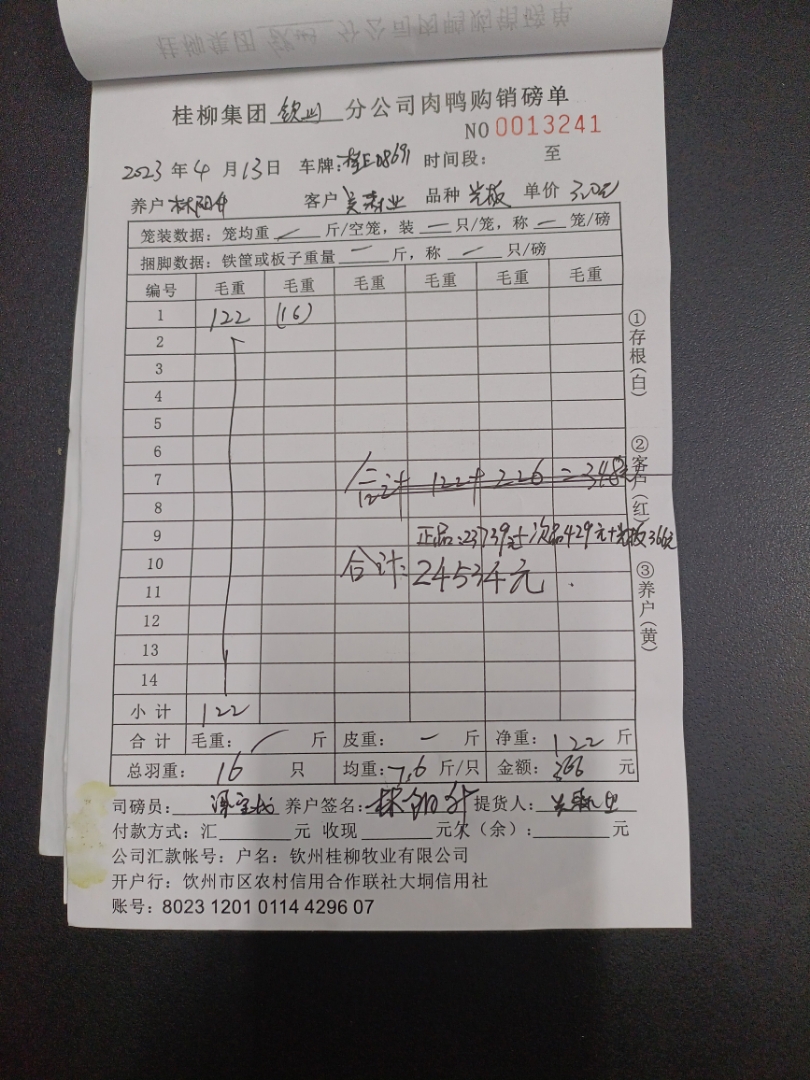 桂柳集团 钦州 分公司肉鸭购销磅单
NO 0013241
2023 年 4 月 13 日 车牌: 时间段: 至
养户 客户 品种 光板 单价 3.0元
笼装数据: 笼均重 / 斤/空笼, 装 一 只/笼, 称 一 笼/磅
捆脚数据: 铁筐或板子重量 一 斤, 称 一 只/磅
编号 毛重 毛重 毛重 毛重 毛重 毛重
1 122 (16)
2
3
4
5
6
7 合计 122+226=348
8
9 正品:23739元+次品429元+光板366元
10 合计:24534元.
11
12
13
14
小计 122
合计 毛重: / 斤 皮重: 一 斤 净重: 122 斤
总羽重: 16 只 均重: 7.6 斤/只 金额: 366 元
司磅员: 养户签名: 提货人:
付款方式: 汇 元 收现 元欠(余): 元
公司汇款帐号: 户名: 钦州桂柳牧业有限公司
开户行: 钦州市区农村信用合作联社大垌信用社
账号: 8023 1201 0114 4296 07
①存根(白)
②客户(红)
③养户(黄)